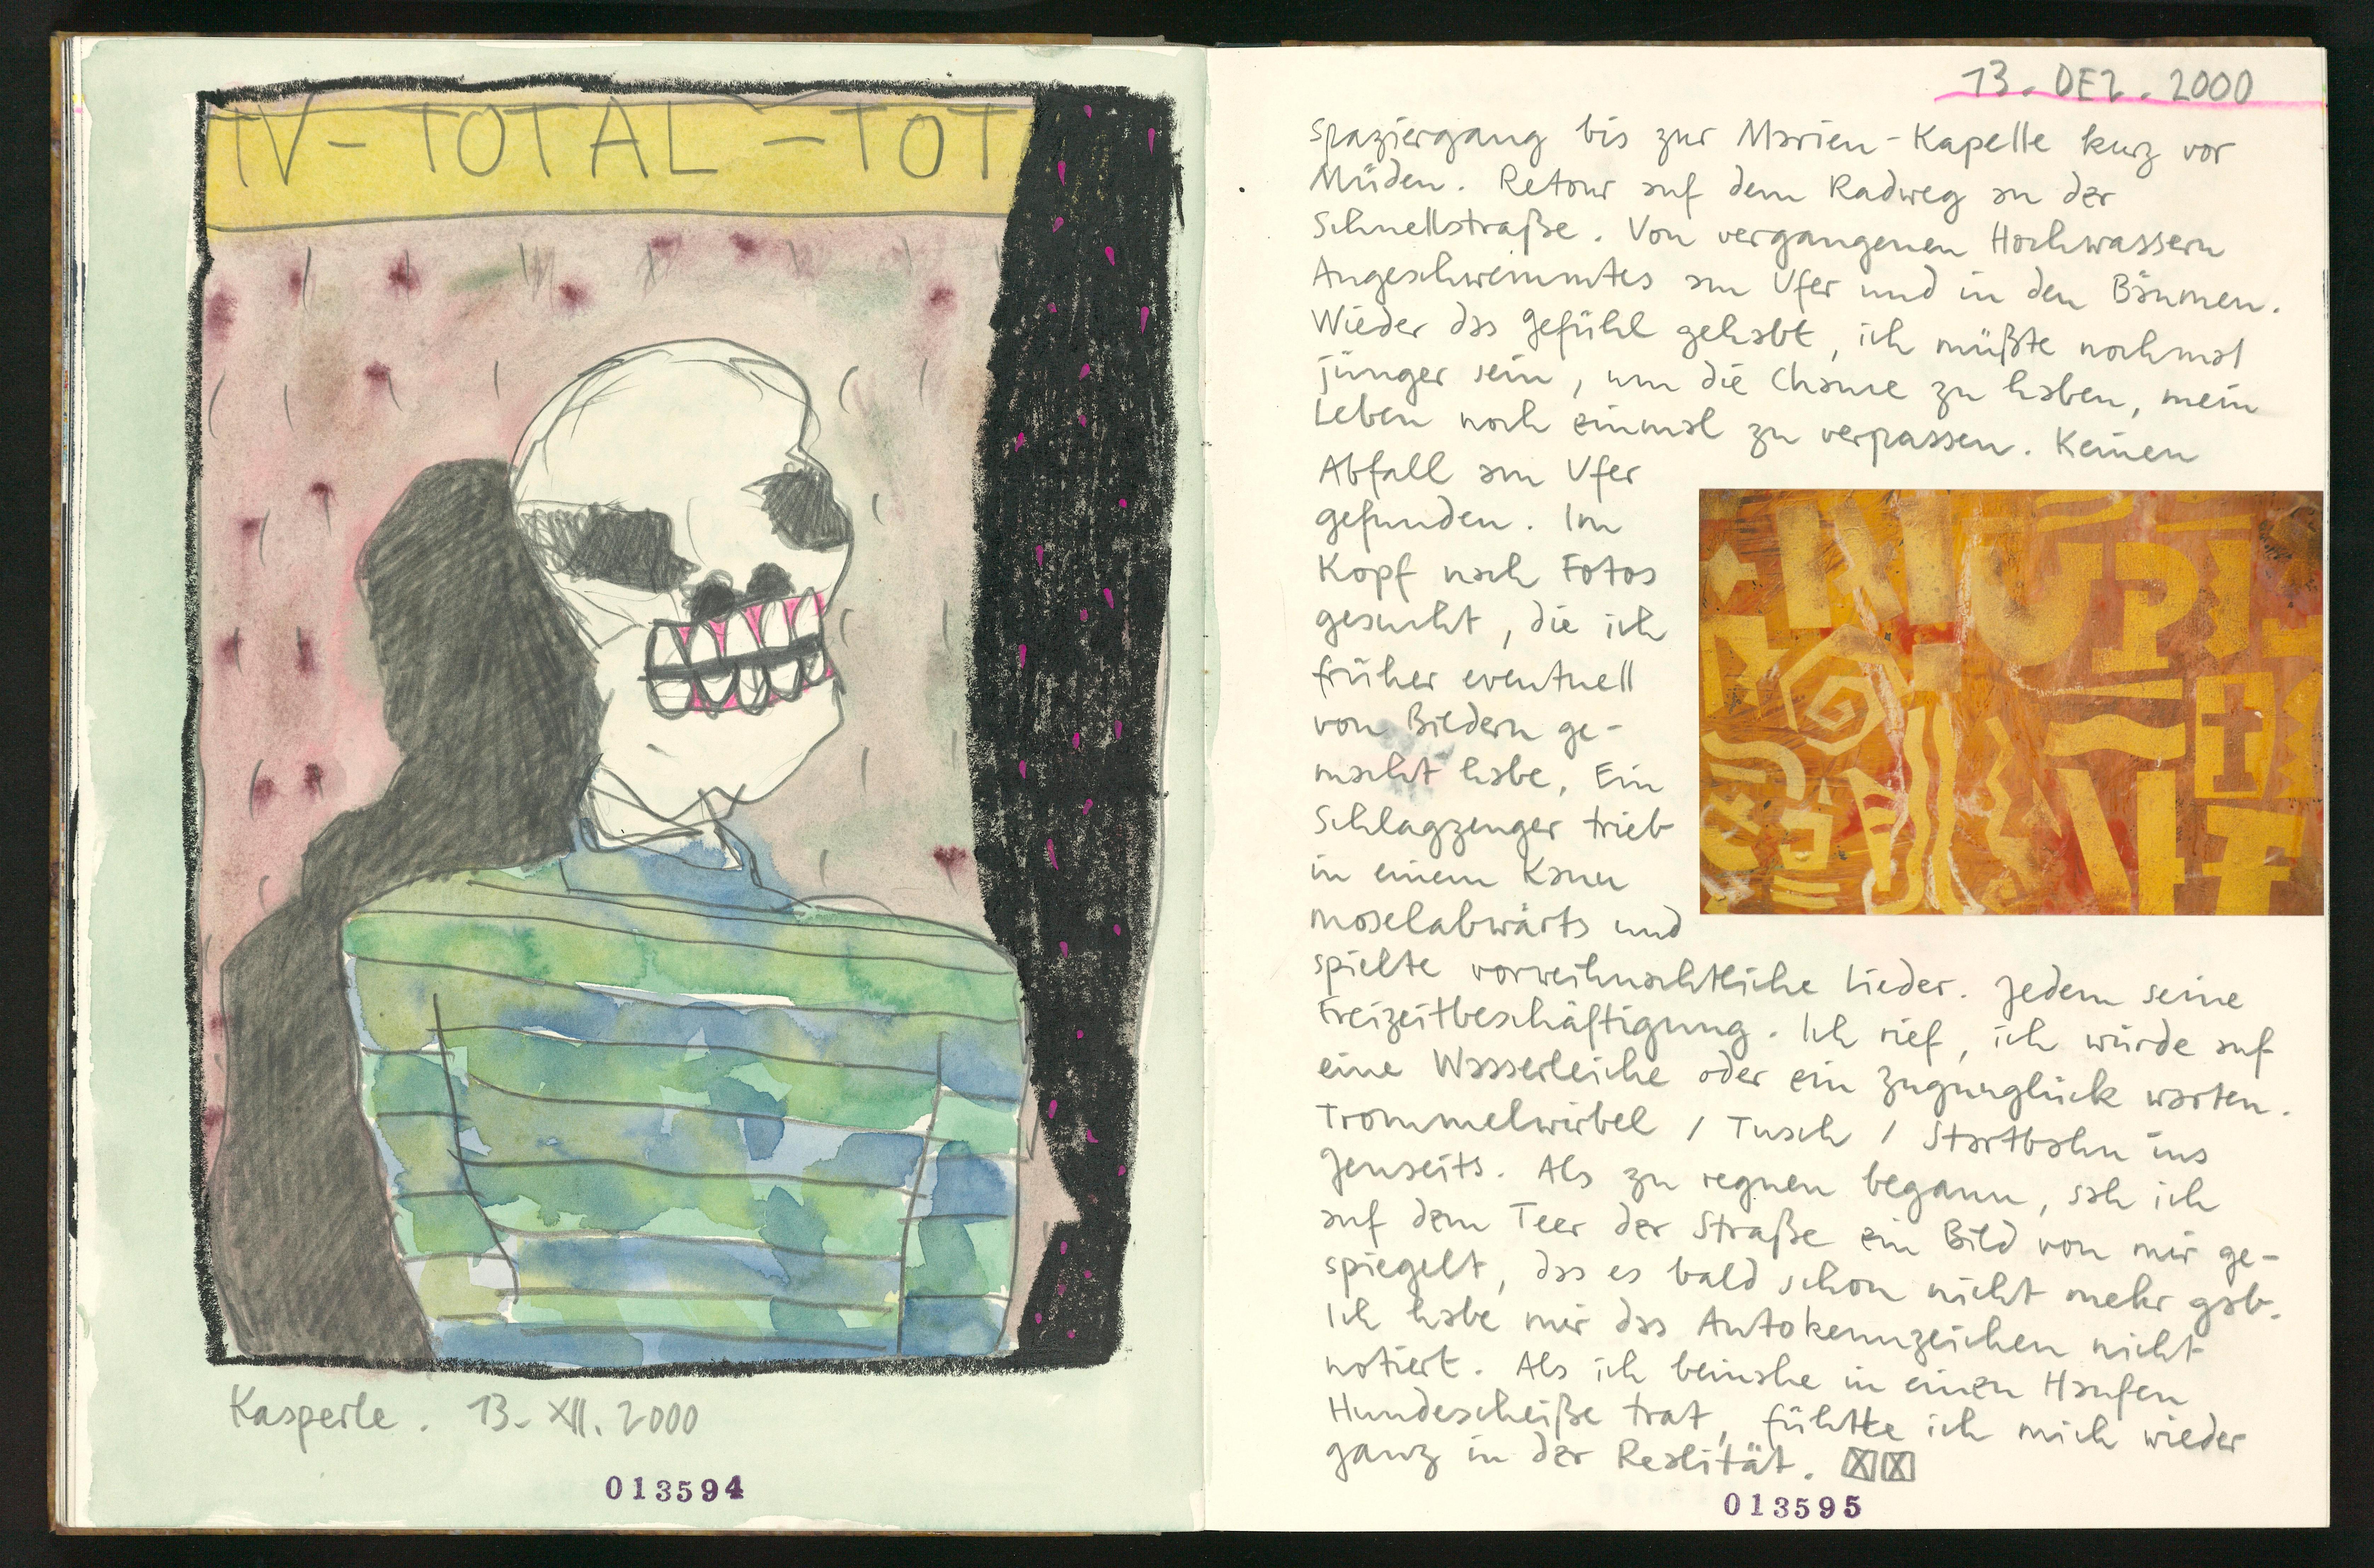 TV-TOTAL-TOT
Kasperle. 13. XII. 2000
013594
13. DEZ. 2000
Spaziergang bis zur Marien-Kapelle kurz vor
Müden. Retour auf dem Radweg an der
Schnellstraße. Von vergangenen Hochwassern
Angeschwemmtes am Ufer und in den Bäumen.
Wieder das Gefühl gehabt, ich müßte nochmal
jünger sein, um die Chance zu haben, mein
Leben noch einmal zu verpassen. Keinen
Abfall am Ufer
gefunden. Im
Kopf nach Fotos
gesucht, die ich
früher eventuell
von Bildern ge-
macht habe. Ein
Schlagzeuger trieb
in einem Kanu
moselabwärts und
spielte vorweihnachtliche Lieder. Jedem seine
Freizeitbeschäftigung. Ich rief, ich würde auf
eine Wasserleiche oder ein Zugunglück warten.
Trommelwirbel / Tusch / Startbahn ins
Jenseits. Als zu regnen begann, sah ich
auf dem Teer der Straße ein Bild von mir ge-
spiegelt, das es bald schon nicht mehr gab.
Ich habe mir das Autokennzeichen nicht
notiert. Als ich beinahe in einen Haufen
Hundescheiße trat, fühlte ich mich wieder
ganz in der Realität.
013595